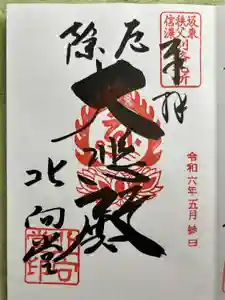 坂東
秩父
信濃
奉拝
令和六年五月参日
厄除
大悲殿
北向堂